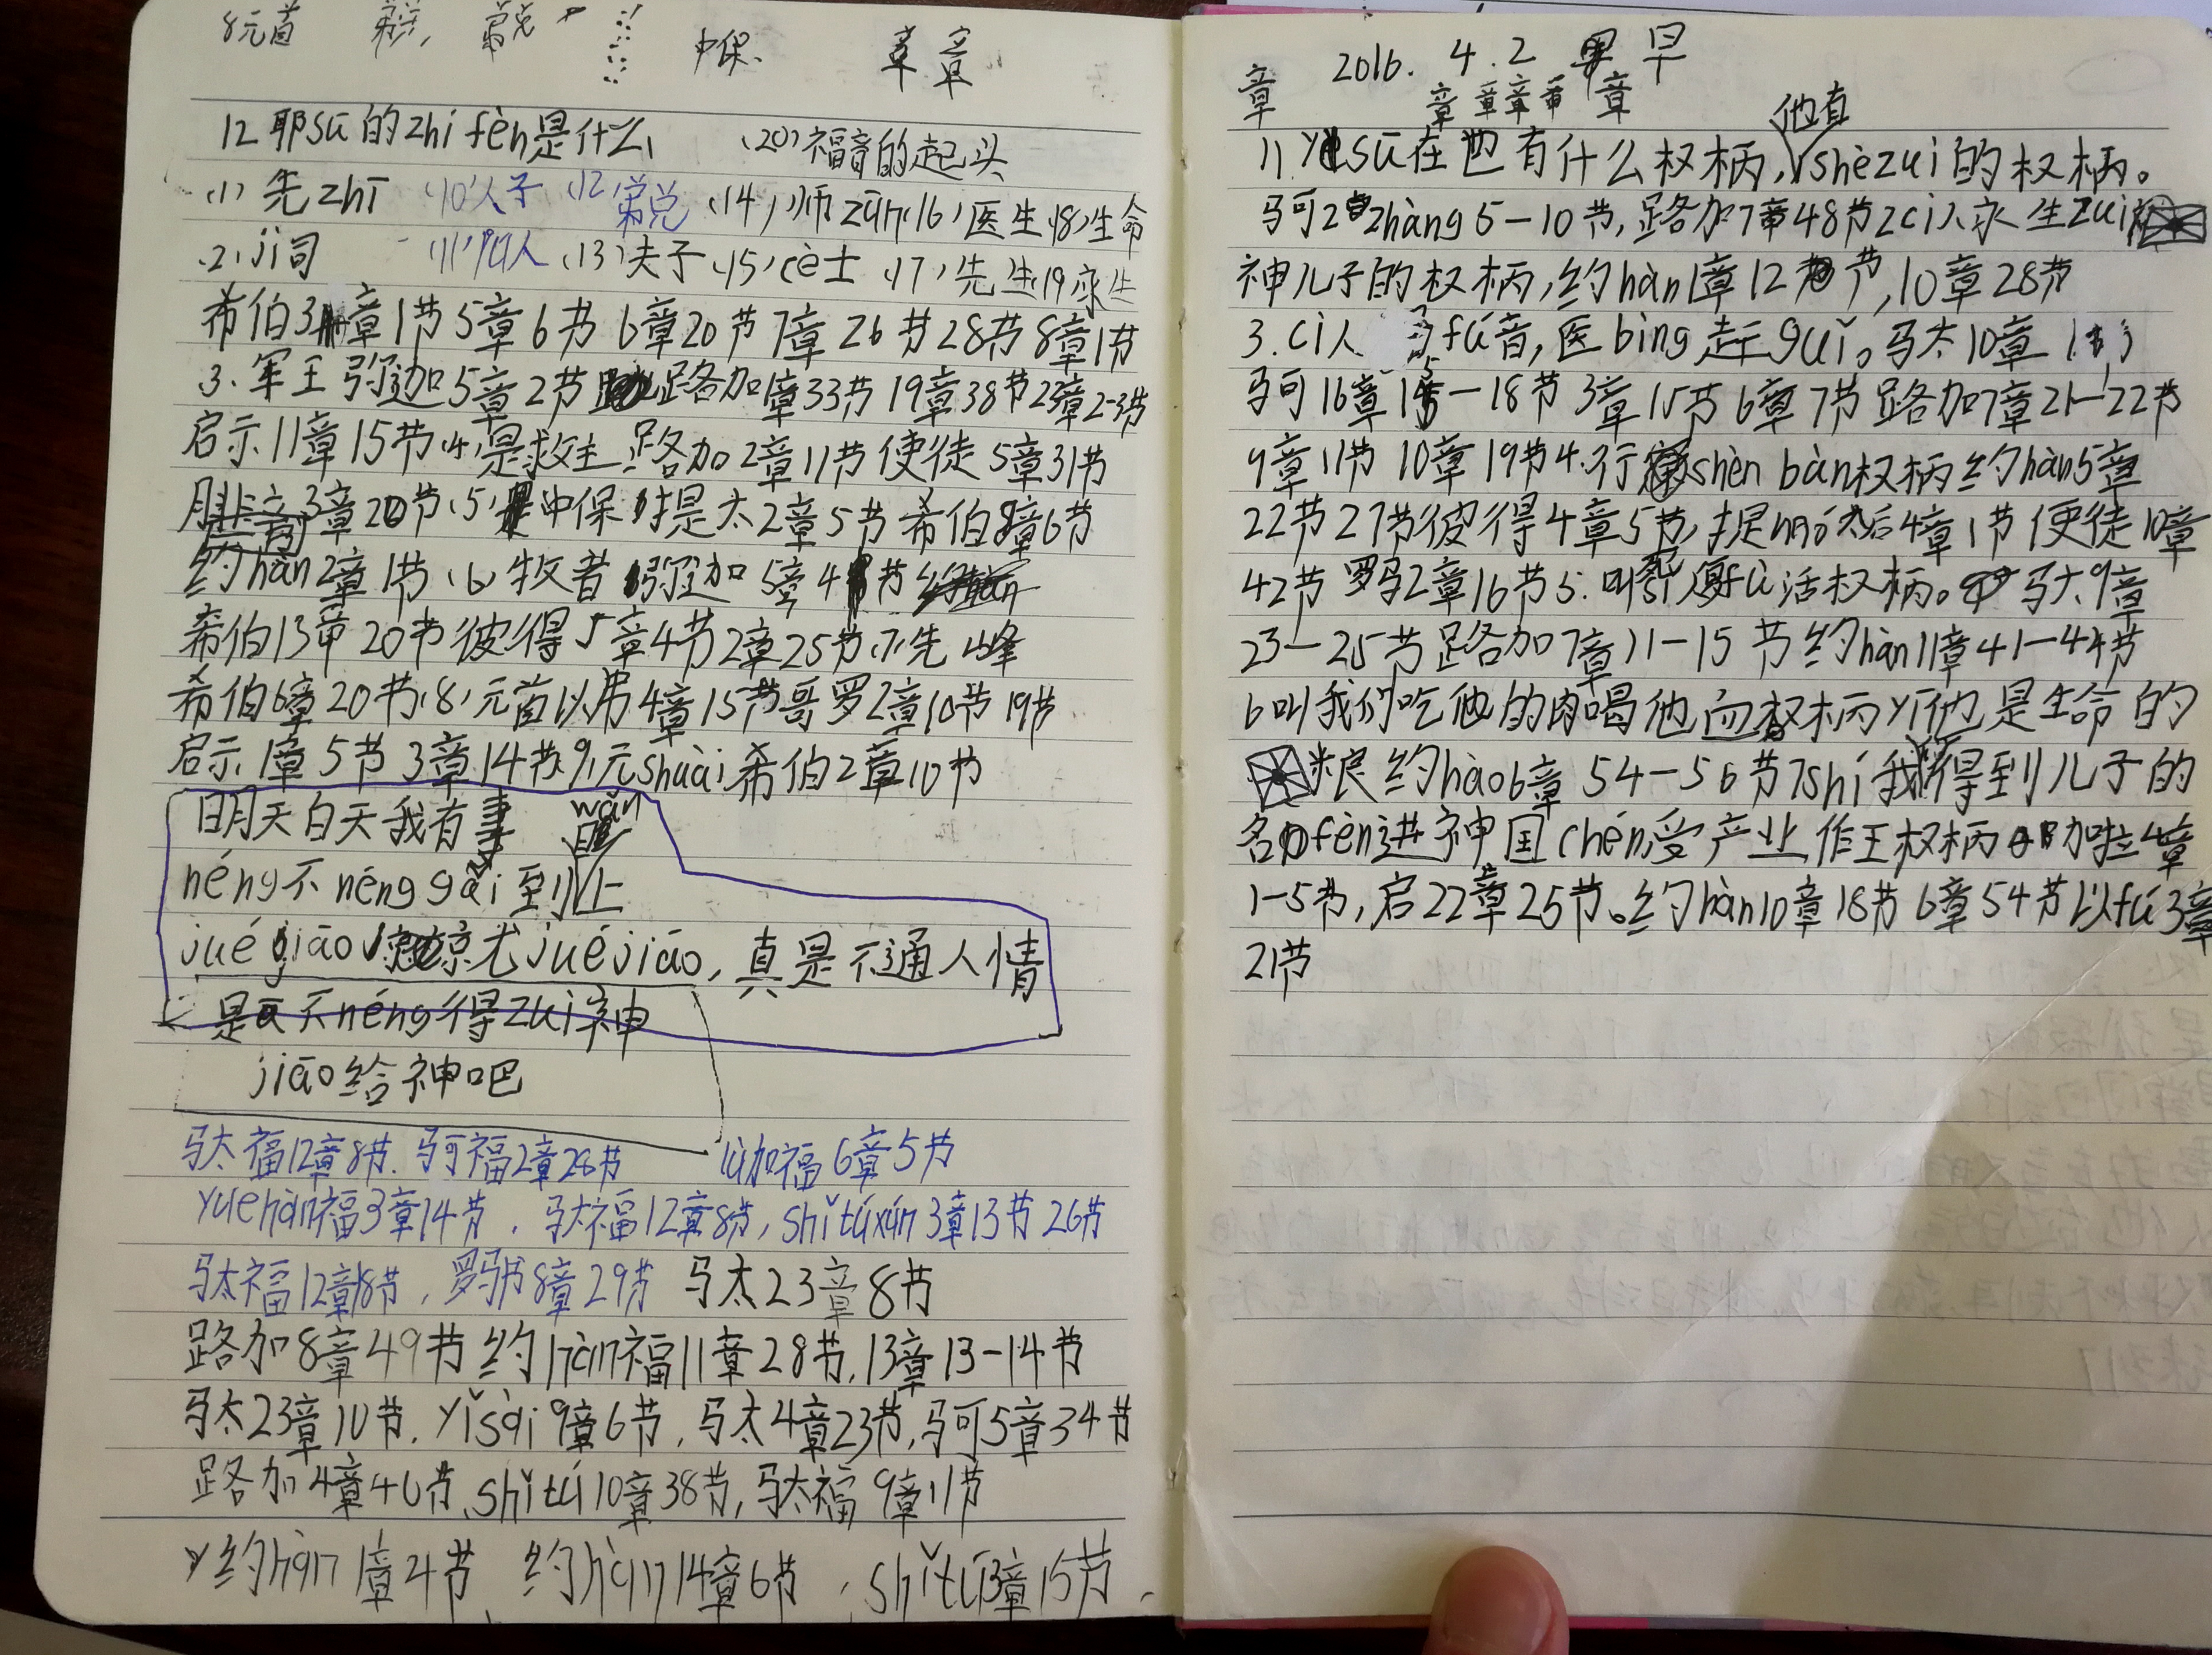 8元首
中保.
章章
12耶sū的zhí fèn是什么 (20)福音的起头
(1)先zhī (10)人子 (12) (14)师zūn (16)医生 (18)生命
(2)jì司 (11) (13)夫子 (15)cè士 (17)先生 (19)永生
希伯3章1节5章6节6章20节7章26节28节8章1节
3.军王弥迦5章2节路加1章33节19章38节23章2-3节
启示11章15节(4)是救主路加2章11节使徒5章31节
腓立3章20节(5)是中保 是太2章5节希伯8章6节
约hàn2章1节(6)牧者弥迦5章4节
希伯13章20节彼得5章4节2章25节(7)先峰
希伯6章20节(8)元首以弗4章15节哥罗2章10节19节
启示1章5节3章14节(9)元shuài希伯2章10节
明天白天我有事 wǎn
néng不néng gǎi到 上
jué jiāo 尤juéjiāo,真是不通人情
是 不néng得zuì神
jiāo给神吧
马太福12章8节.马可福2章28节 lù加福6章5节
yuehàn福3章14节,马太福12章8节,shǐtúxún3章13节26节
马太福12章8节,罗马书8章29节 马太23章8节
路加8章49节约hàn福11章28节,13章13-14节
马太23章10节,yǐsài9章6节,马太4章23节,马可5章34节
路加4章40节,shǐtú10章38节,马太福9章11节
约hàn1章4节,约hàn14章6节,shǐtú3章15节,
2016.4.2 早
章 章章章 章
他有
11 yēsū在 有什么权柄,shèzuì的权柄。
马可2zhāng5-10节,路加7章48节2cì人永生zuì
神儿子的权柄,约hàn1章12节,10章28节
3.cì人 fú音,医bìng赶guǐ。马太10章1
马可16章15-18节3章15节6章7节路加7章21-22节
9章11节10章19节4.行shěn bàn权柄约hàn5章
22节27节彼得4章5节,提mó太后4章1节使徒10章
42节罗马2章16节5.叫死人fù活权柄。马太9章
23-25节路加7章11-15节约hàn11章41-44节
6叫我们吃他的肉喝他血权柄yī他是生命的
粮约hàn6章54-56节7shí我得到儿子的
名fèn进神国chén受产业作王权柄加拉4章
1-5节,启22章25节。约hàn10章18节6章54节以fú3章
21节